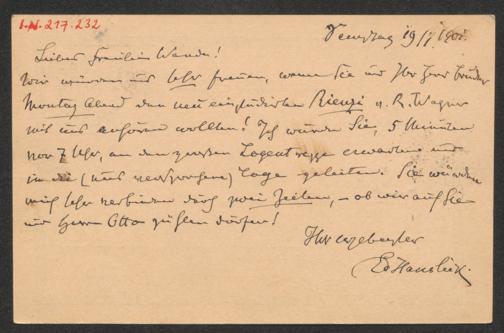 I.N. 217.232
Samstag 19/1 1901
Liebes Fräulein Wanda!
Wir würden uns sehr freuen, wenn Sie und Ihr Herr Bruder
Montag Abend den neu einstudirten Rienzi v. R. Wagner
mit uns anhören wollten! Ich würde Sie, 5 Minuten
vor 7 Uhr, an der großen Logentreppe erwarten und
in die (uns versprochene) Loge geleiten. Sie würden
mich sehr verbinden durch zwei Zeilen, – ob wir auf Sie
und Herrn Otto zählen dürfen!
Ihr ergebenster
Ed Hanslick.